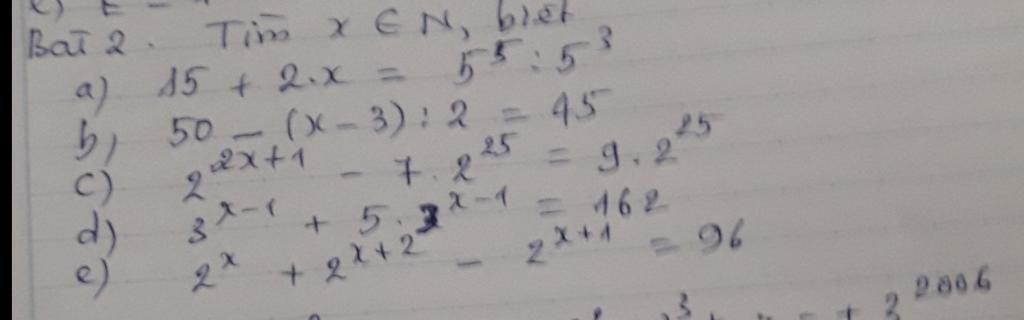 Bài 2. Tìm x ∈ N, biết
a) 15 + 2.x = 5^5 : 5^3
b) 50 - (x - 3) : 2 = 45
c) 2^{2x+1} - 7.2^{25} = 9.2^{25}
d) 3^{x-1} + 5.3^{x-1} = 162
e) 2^x + 2^{x+2} - 2^{x+1} = 96